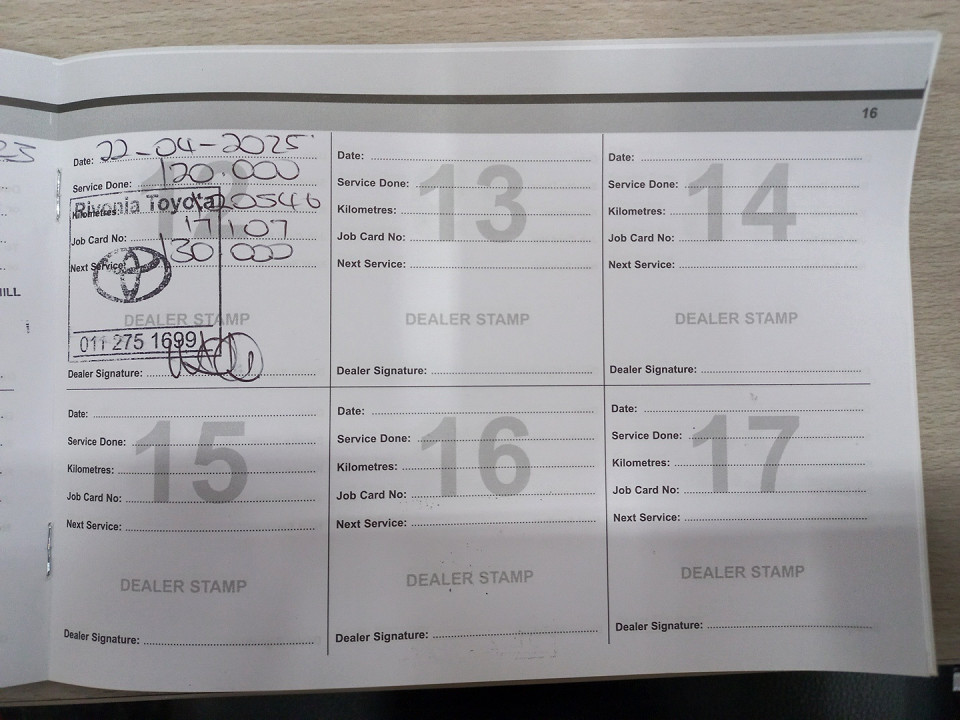 16
Date: 22-04-2025
Service Done: 120.000
Rivonia Toyota
Kilometres: 120546
Job Card No: 17107
Next Service: 130.000
12
DEALER STAMP
011 275 1699
Dealer Signature:
Date:
Service Done:
Kilometres:
Job Card No:
Next Service:
13
DEALER STAMP
Dealer Signature:
Date:
Service Done:
Kilometres:
Job Card No:
Next Service:
14
DEALER STAMP
Dealer Signature:
Date:
Service Done:
Kilometres:
Job Card No:
Next Service:
15
DEALER STAMP
Dealer Signature:
Date:
Service Done:
Kilometres:
Job Card No:
Next Service:
16
DEALER STAMP
Dealer Signature:
Date:
Service Done:
Kilometres:
Job Card No:
Next Service:
17
DEALER STAMP
Dealer Signature: